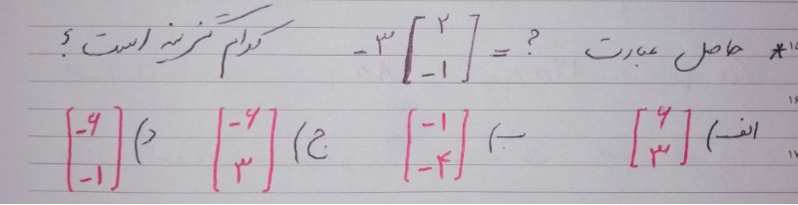 * حاصل عبارت ؟ = [۲ -۱] ۳- کدام گزینه است ؟
الف) [۶ ۳] ب) [-۱ -۴] ج) [-۶ ۳] د) [-۶ -۱]